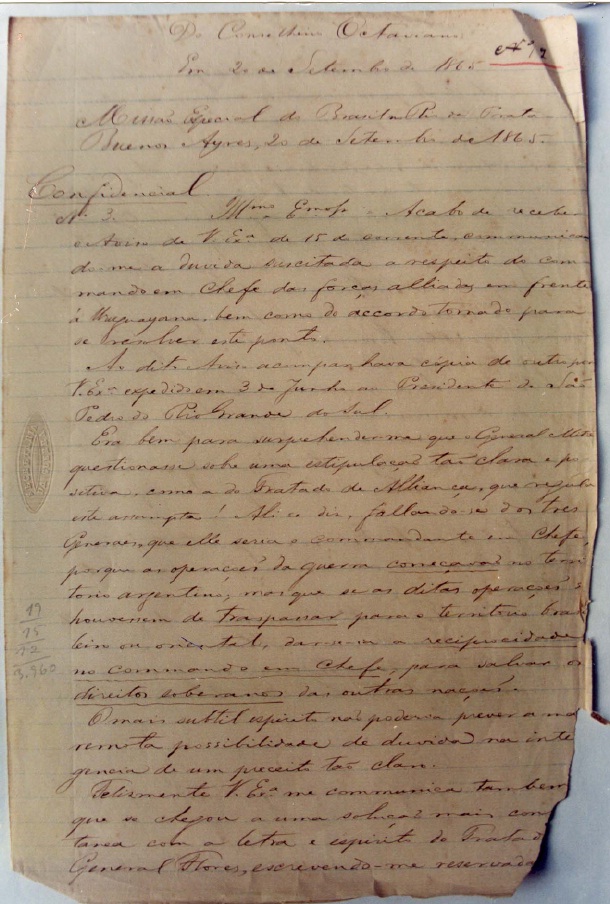 Do Conselheiro Octaviano
Em 20 de Setembro de 1865
Nº 12
Missão Especial do Brasil no Rio da Prata
Buenos Ayres, 20 de Setembro de 1865.
Confidencial
Nº 2. Illmo Exmo Sr Acabo de receber
o Aviso de V. Exª de 15 do corrente, communican
do-me a duvida suscitada a respeito do com
mando em Chefe das forças alliadas em frente
à Uruguayana, bem como do accordo tomado para
se resolver este ponto.
Ao dito Aviso acompanhava cópia de outro por
V. Exª expedido em 3 de Junho ao Presidente de São
Pedro do Rio Grande do Sul.
Era bem para surprehender-me que o General Mitre
questionasse sobre uma estipulação tão clara e po
sitiva, como a do Tratado de Alliança, que regula
este assumpto! Ali se diz, fallando-se dos tres
Generaes, que elle seria o commandante em Chefe,
porque as operações da guerra começavão no terri
torio argentino; mas que se as ditas operações
houvessem de traspassar para o territorio brasi
leiro ou oriental, dar-se-ia a reciprocidade
no commando em Chefe, para salvar os
direitos soberanos das outras nações.
O mais subtil espirito não poderia prever a mais
remota possibilidade de duvida na intelli
gencia de um preceito tão claro.
Felizmente V. Exª me communica tambem
que se chegou a uma solução mais cons
tanea com a letra e espirito do Tratado
General Flores, escrevendo-me reservada
19
15
12
3.960